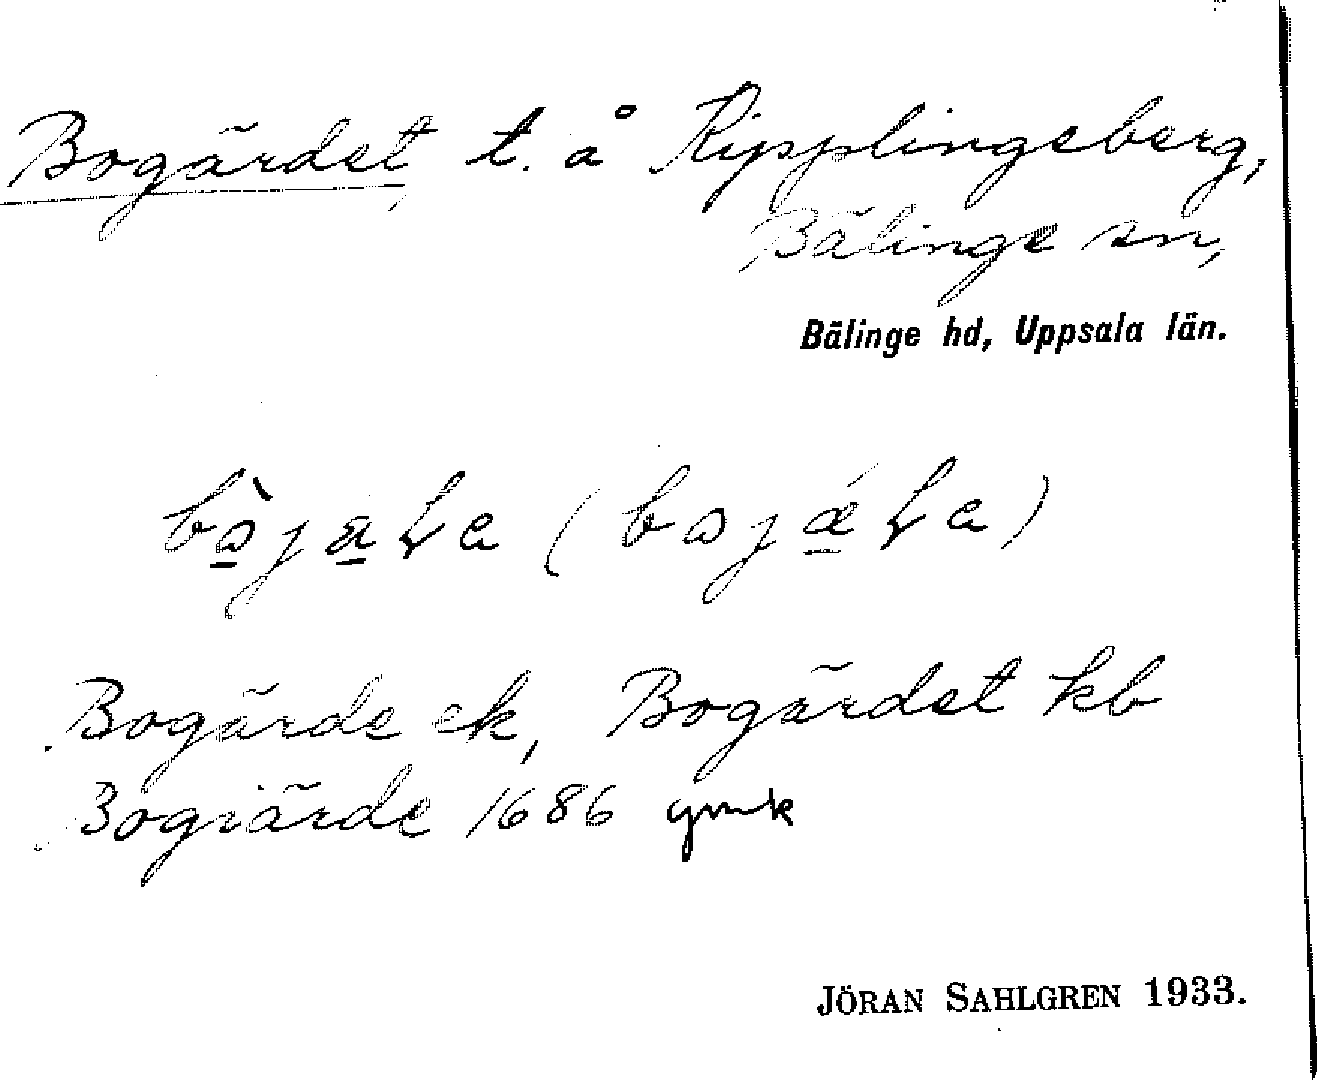 Bogärdet, t. å Ripplingeberg,
Bälinge sn,
Bälinge hd, Uppsala län.
Bogärde ek, Bogärdet kb
Bogiärde 1686 ymk
JÖRAN SAHLGREN 1933.